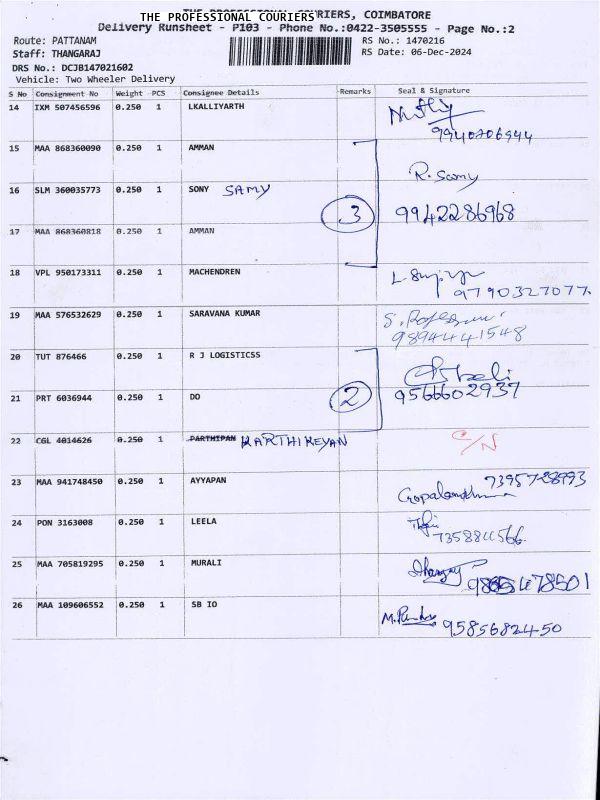 THE PROFESSIONAL COURIERS
THE PROFESSIONAL COURIERS, COIMBATORE
Delivery Runsheet - P103 - Phone No.:0422-3505555 - Page No.:2
Route: PATTANAM
RS No.: 1470216
Staff: THANGARAJ
RS Date: 06-Dec-2024
DRS No.: DCJB147021602
Vehicle: Two Wheeler Delivery
S No Consignment No Weight PCS Consignee Details Remarks Seal & Signature
14 IXM 507456596 0.250 1 LKALLIYARTH
9940706944
15 MAA 868360090 0.250 1 AMMAN
R. Samy
16 SLM 360035773 0.250 1 SONY SAMY
3 9942286968
17 MAA 868360818 0.250 1 AMMAN
18 VPL 950173311 0.250 1 MACHENDREN
9790327077.
19 MAA 576532629 0.250 1 SARAVANA KUMAR
9894441548
20 TUT 876466 0.250 1 R J LOGISTICSS
21 PRT 6036944 0.250 1 DO 2 9566602937
22 CGL 4014626 0.250 1 PARTHIPAN KARTHIKEYAN C/N
23 MAA 941748450 0.250 1 AYYAPAN 7395728993
24 PON 3163008 0.250 1 LEELA
25 MAA 705819295 0.250 1 MURALI
26 MAA 109606552 0.250 1 SB IO
9585682450